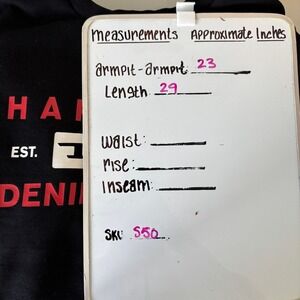 measurements Approximate Inches
armpit-armpit: 23
Length: 29
HA
EST.
DENI
waist:
rise:
Inseam:
SKU: S50